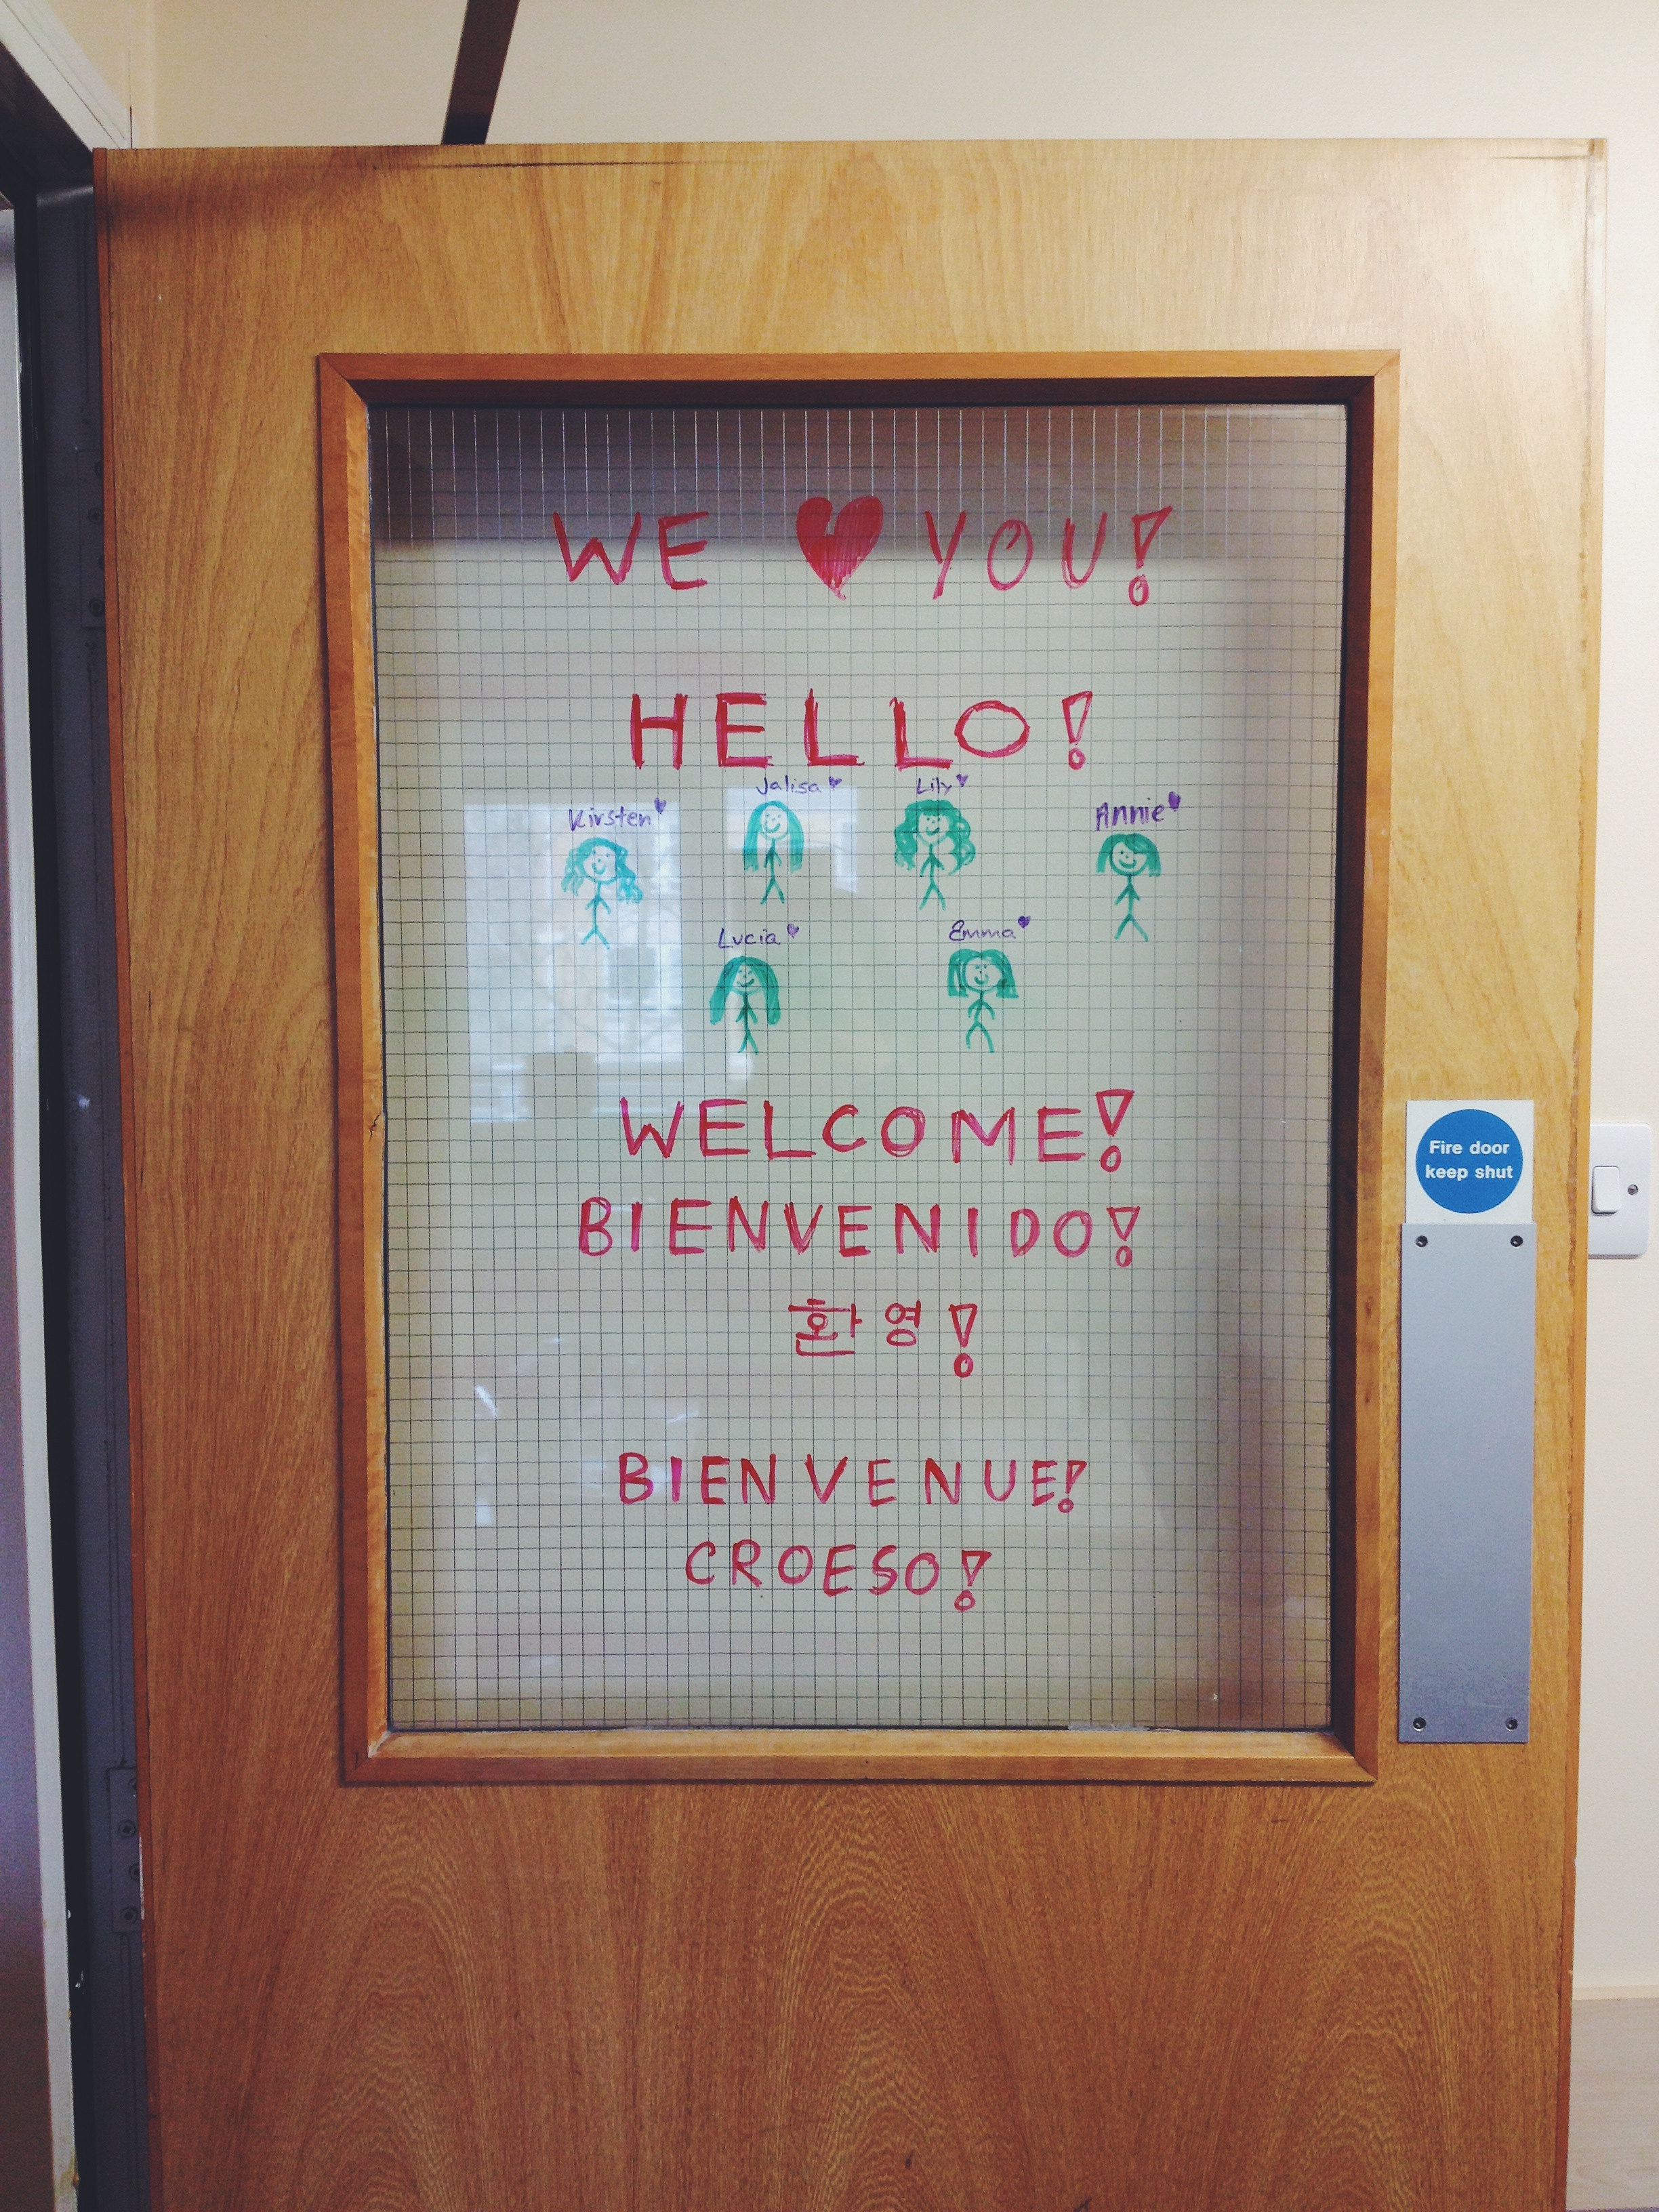 WE ❤ YOU!
HELLO!
Kirsten Jalisa Lily Annie
Lucia Emma
WELCOME!
BIENVENIDO!
환영!
BIENVENUE!
CROESO!
Fire door
keep shut